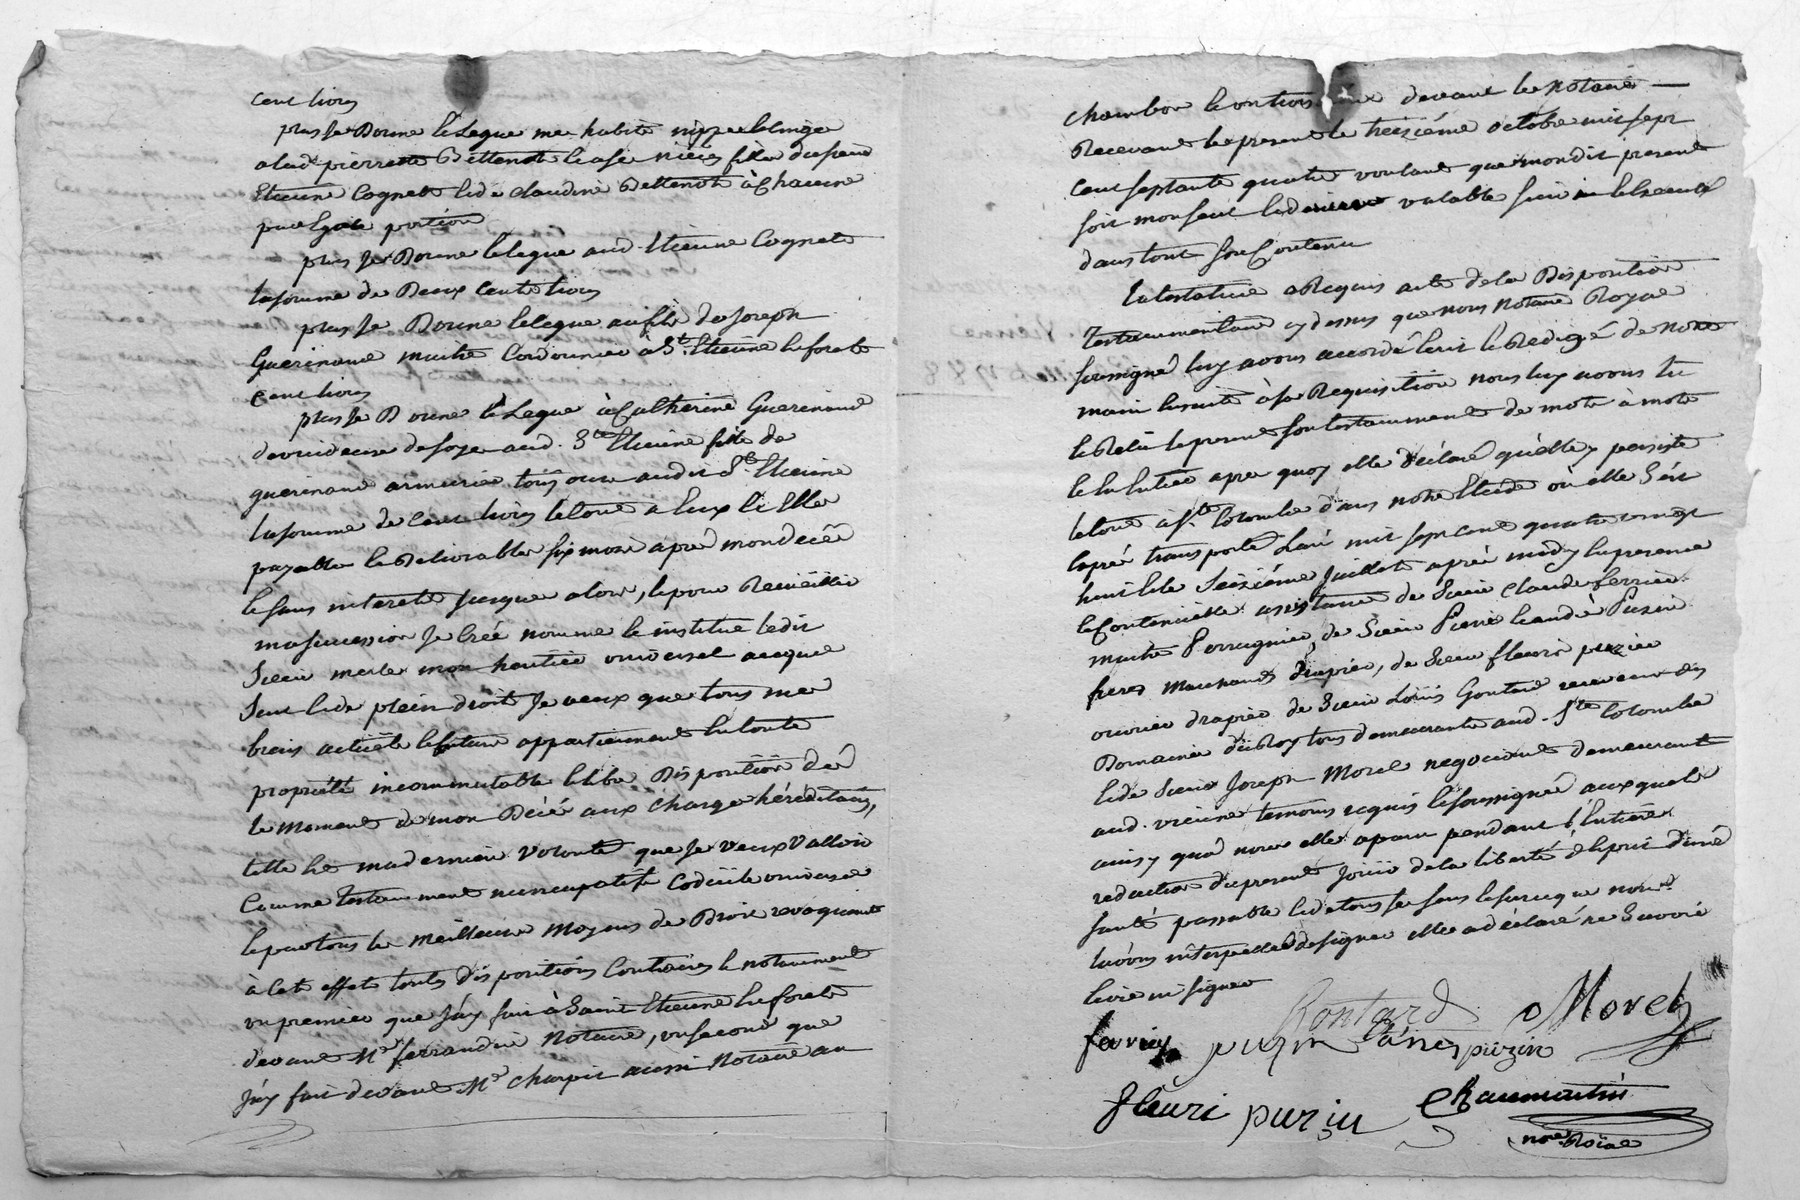 Cent livres
plus Je Donne et Legue mes habits nippes et linge
a lad. pierrette Bettenot et a ses nièces filles du feu
Etienne Cognet et de Claudine Bettenot à Chacune
par egale portion
plus Je Donne et legue aud. Etienne Cognet
la somme de Deux Cents livres
plus Je Donne et legue au fils de Joseph
Guerinaud maitre Cordonnier à St. Etienne en forets
Cent livres
plus Je Donne et Legue à Catherine Guerinaud
devuideuse de soye aud. St. Etienne fille de
guerinaud armurier tous ouvr audit St. Etienne
la somme de Cent livres le tout a eux et Elle
payable et Delivrable six mois après mon decès
et sans interets jusques alors, et pour Recueillir
ma succession Je Créé nomme et institue ledit
Sieur merle mon heritier universel auquel
Seul et de plein droit Je veux que tous mes
biens actuels et futurs appartiennent en toute
propriété incommutable et libre Disposition dès
le Moment de mon Décés aux Charges héréditaires,
telle est ma derniere volonté que Je veux Valloir
Comme Testament nuncupatif Codicile universel
et par tous les meilleurs Moyens de Droit revoquant
à Cet effet toutes dispositions Contraires et notamment
un premier que J'ay fait à Saint Etienne en forets
devant Me ferrandin Notaire, un second que
J'ay fait devant Me Charpin aussi Notaire au
Chambon et un trois devant le Notaire
Recevant le present le treizième octobre mil sept
Cent septante quatre voulant que mondit present
soit mon seul et dernier valable suivi et execute
dans tout son Contenu
La testatrice a Requis acte de la Disposition
Testamentaire cy dessus que nous Notaire Royal
soussigné luy avons accordé Ecrit et Redigé de notre
main ensuite à sa Requisition nous luy avons lu
et Relu le present son testament de mots à mots
et en Entier apres quoy elle à declaré qu'elle y persiste
le tout à Ste Colombe dans notre Etude où elle s'est
Exprès transporté L'an mil sept cent quatre vingt
huit et le Seizième Juillet après midy en presence
et Continuelle assistance de Sieur Claude ferrier
maitre Perruquier, de Sieur Pierre et andré Puzin
freres Marchands Drapiers, de Sieur fleuri puzin
ouvrier drapier de Sieur Loüis Gontard receveur des
Domaines du Roy tous demeurants aud. Ste Colombe
et de Sieur Joseph Morel negociant demeurant
aud. vienne temoins requis et soussignés auxquels
ainsy qu'à nous elle a paru pendant l'Entière
redaction du present Jouir de la liberté d'Esprit d'une
santé passable et de tous ses sens et sur ce que nous
l'avons interpellé de signer elle a déclaré ne Savoir
Ecrire ni signer
Gontard Morel
ferrier puzin Lainé puzin
fleuri puzin Chaumartin
nore. Roial